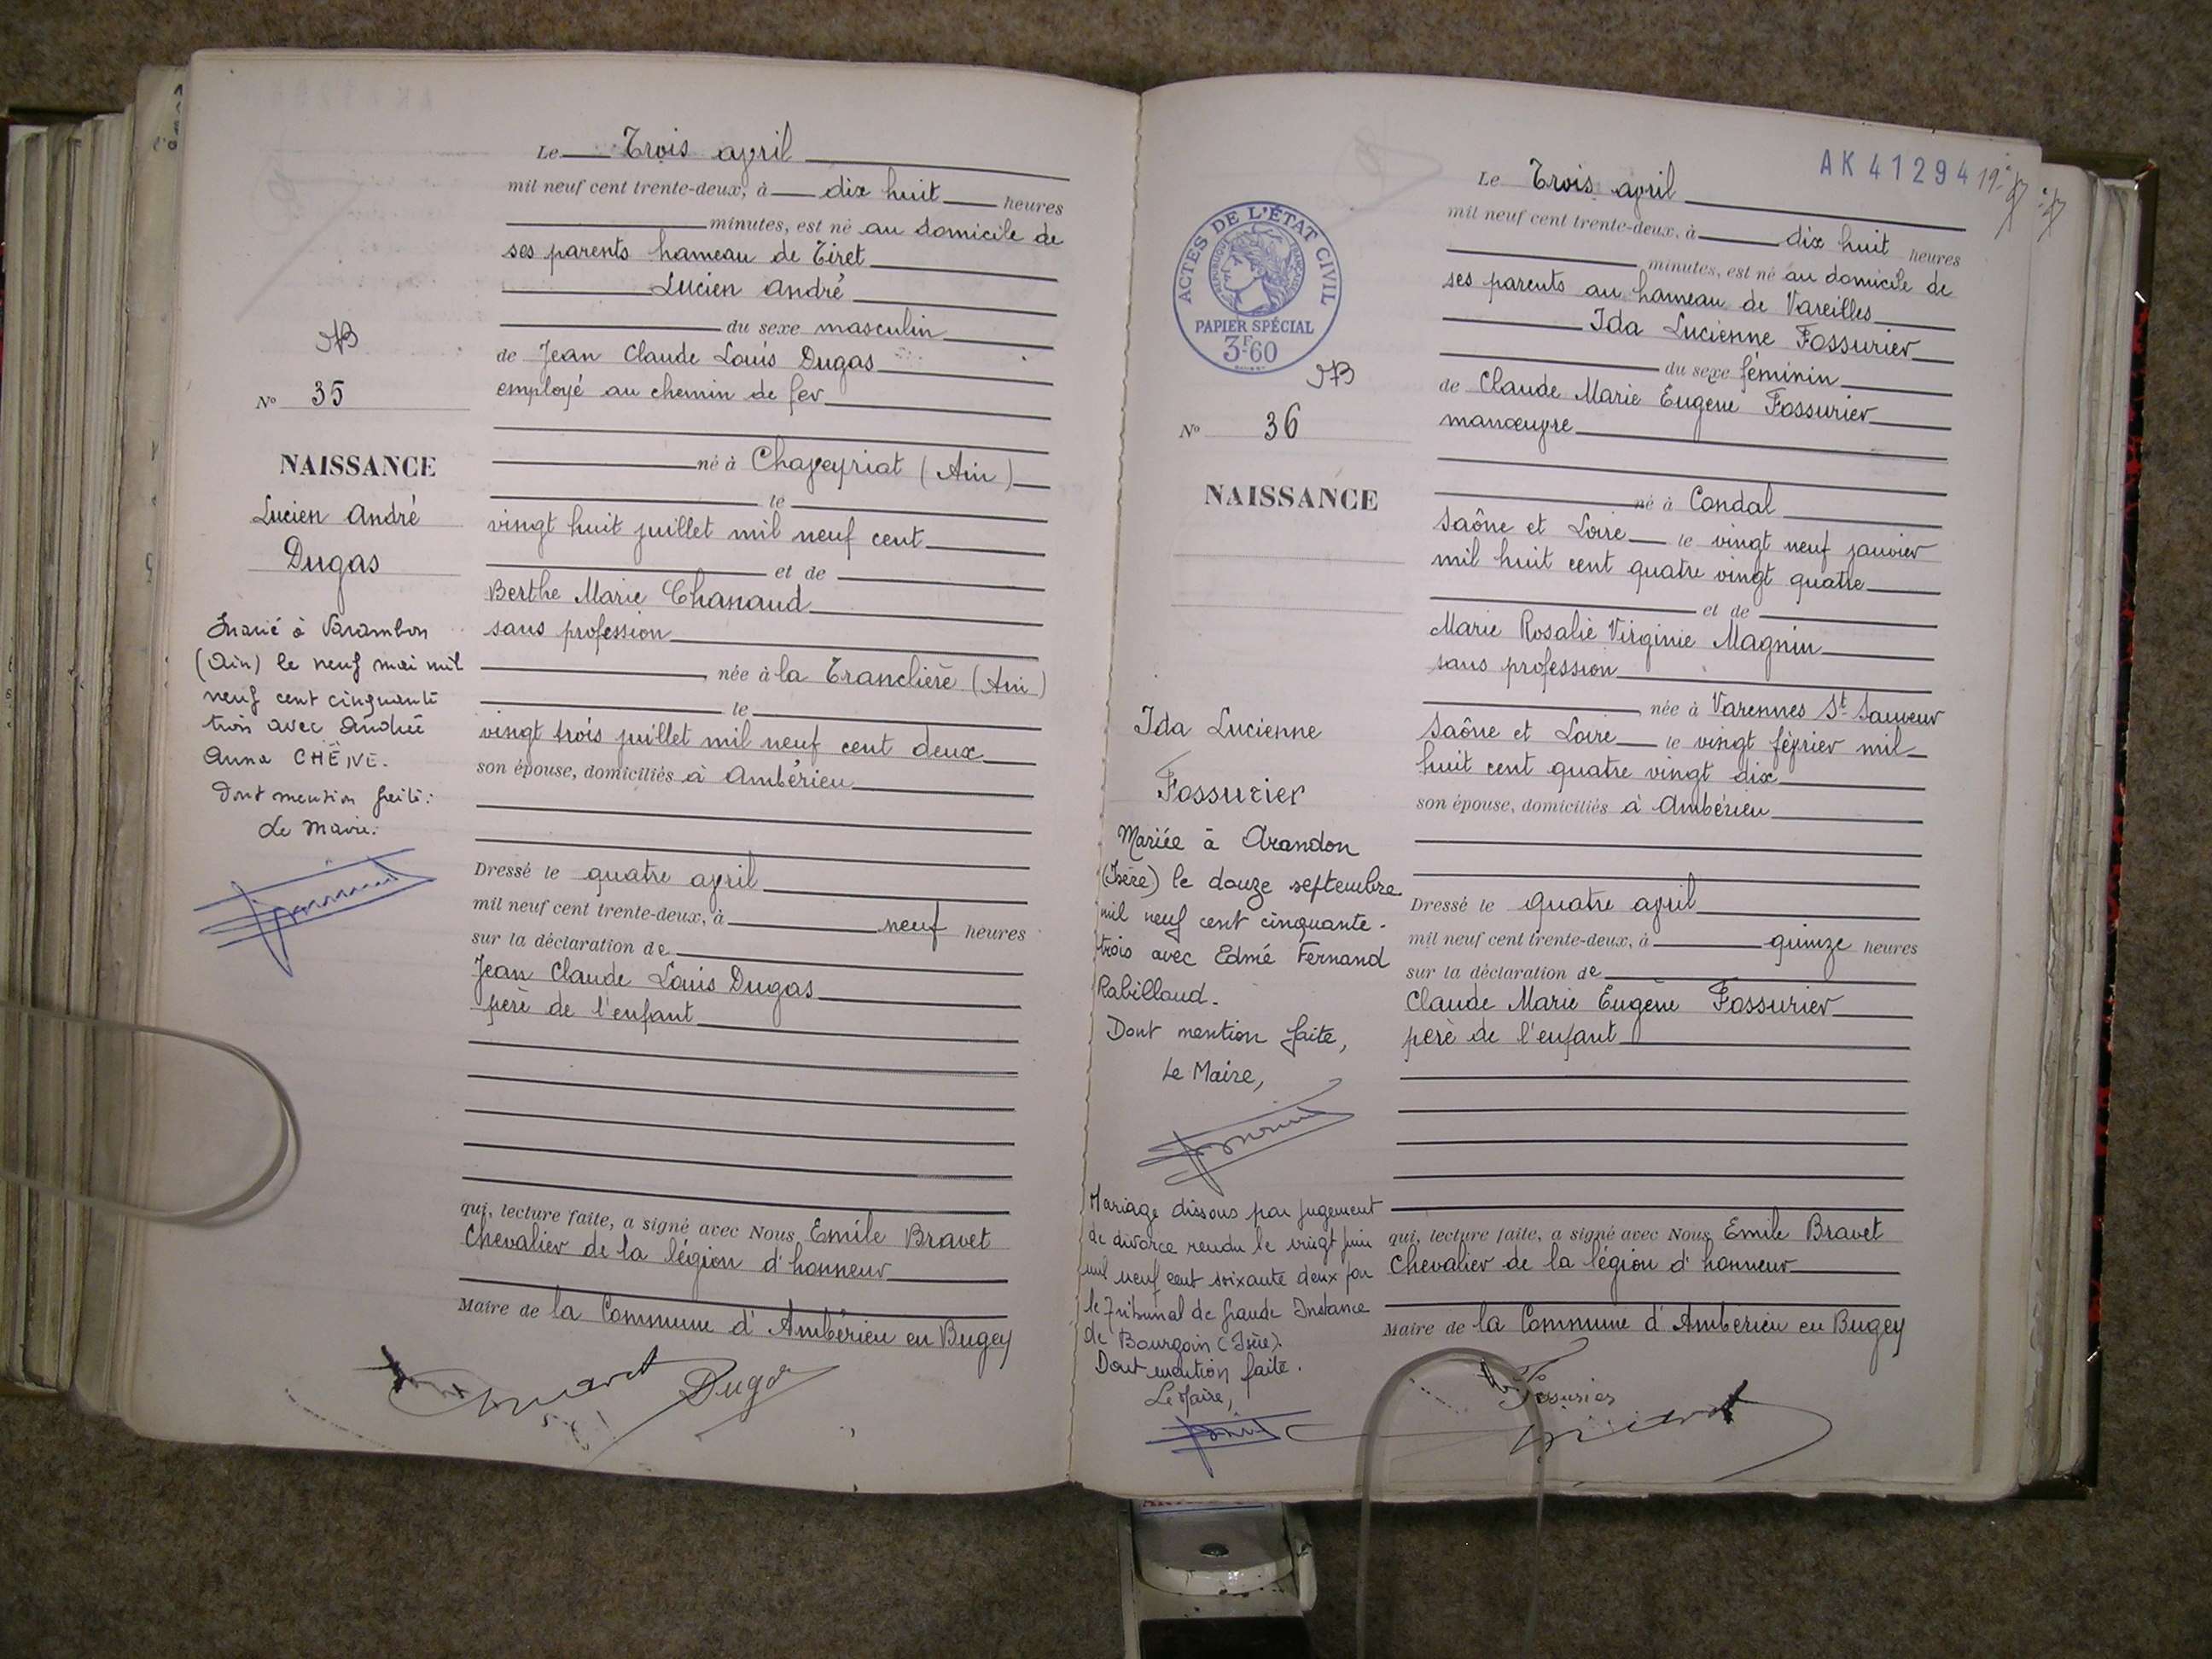 Le Trois avril
mil neuf cent trente-deux, à dix huit heures
minutes, est né au domicile de
ses parents hameau de Tiret
Lucien André
du sexe masculin
de Jean Claude Louis Dugas
employé au chemin de fer
né à Chaveyriat (Ain)
le
vingt huit juillet mil neuf cent
et de
Berthe Marie Chanaud
sans profession
née à la Tranclière (Ain)
le
vingt trois juillet mil neuf cent deux
son épouse, domiciliés à Ambérieu
Dressé le quatre avril
mil neuf cent trente-deux, à neuf heures
sur la déclaration de
Jean Claude Louis Dugas
père de l'enfant
qui, lecture faite, a signé avec Nous Emile Bravet
Chevalier de la légion d'honneur
Maire de la Commune d'Ambérieu en Bugey
Dugas
N° 35
NAISSANCE
Lucien André
Dugas
Marié à Varambon
(Ain) le neuf mai mil
neuf cent cinquante
trois avec Andrée
Anna CHÊNE.
Dont mention faite:
Le Maire:
AK 41294
Le Trois avril
mil neuf cent trente-deux, à dix huit heures
minutes, est né au domicile de
ses parents au hameau de Vareilles
Ida Lucienne Fossurier
du sexe féminin
de Claude Marie Eugène Fossurier
manœuvre
né à Condal
Saône et Loire le vingt neuf janvier
mil huit cent quatre vingt quatre
et de
Marie Rosalie Virginie Magnin
sans profession
née à Varennes St Sauveur
Saône et Loire le vingt février mil
huit cent quatre vingt dix
son épouse, domiciliés à Ambérieu
Dressé le quatre avril
mil neuf cent trente-deux, à quinze heures
sur la déclaration de
Claude Marie Eugène Fossurier
père de l'enfant
qui, lecture faite, a signé avec Nous Emile Bravet
Chevalier de la légion d'honneur
Maire de la Commune d'Ambérieu en Bugey
Fossurier
ACTES DE L'ÉTAT CIVIL
RÉPUBLIQUE FRANÇAISE
PAPIER SPÉCIAL
3F60
N° 36
NAISSANCE
Ida Lucienne
Fossurier
Mariée à Arandon
(Isère) le douze septembre
mil neuf cent cinquante-
trois avec Edmé Fernand
Rabilloud.
Dont mention faite,
Le Maire,
Mariage dissous par jugement
de divorce rendu le vingt juin
mil neuf cent soixante deux par
le Tribunal de Grande Instance
de Bourgoin (Isère).
Dont mention faite.
Le Maire,